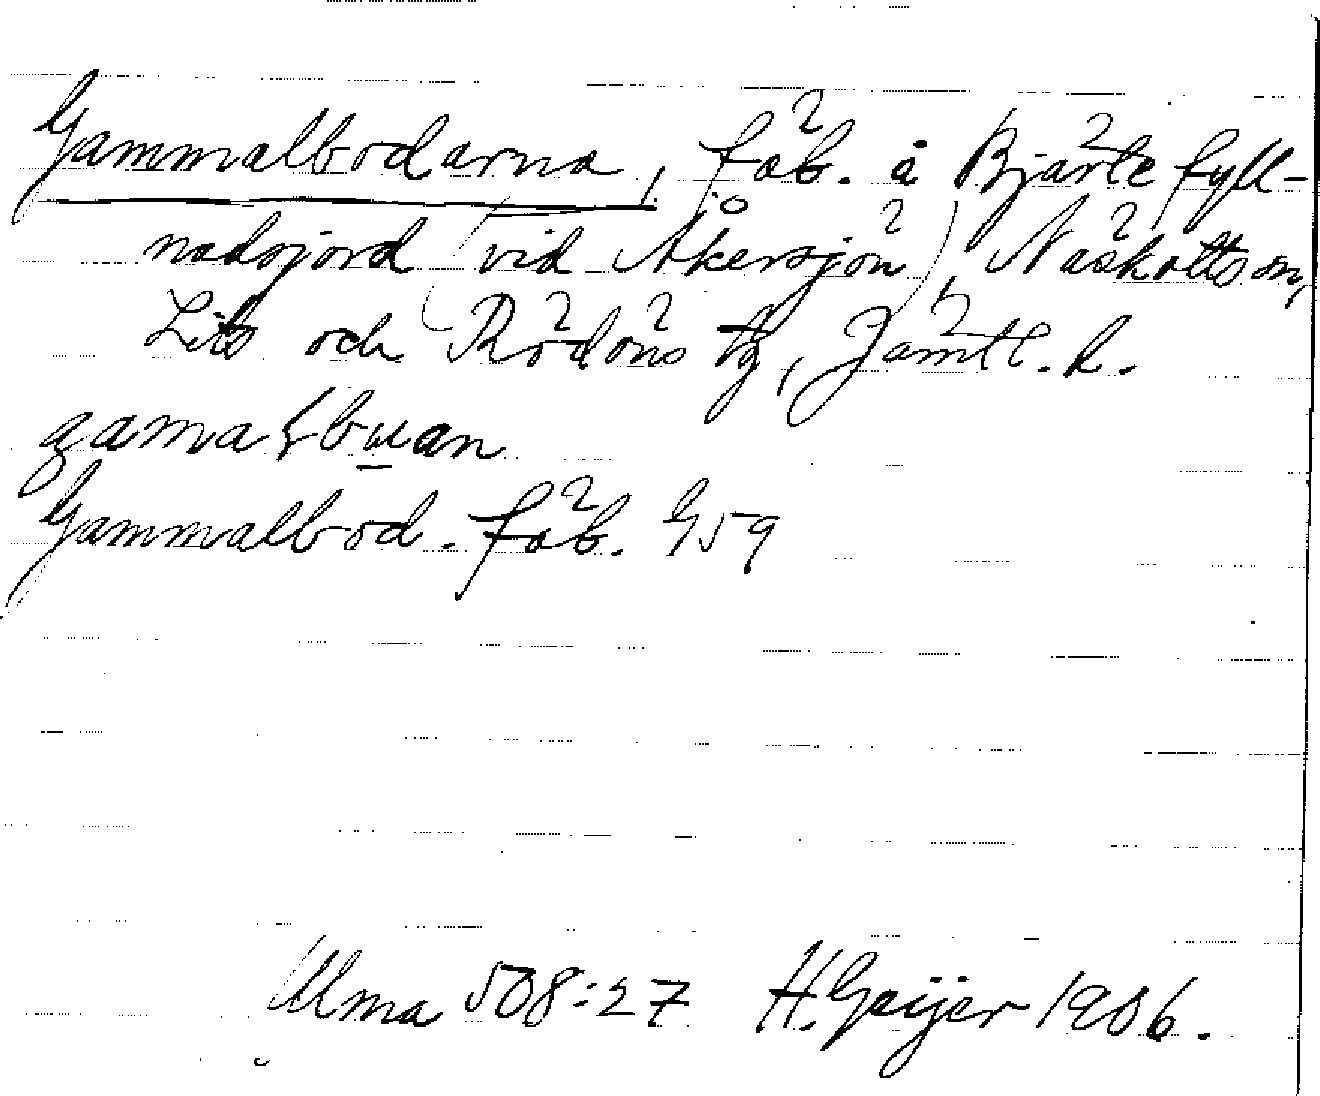 Gammalbodarna, fäb. å Bjärte fyll-
nadsjord (vid Åkersjön), Näskotts sn,
Lits och Rödöns tg, Jämtl. l.
gamaɫbuan
Gammalbod. fäb. G59
Ulma 508:27 H. Geijer 1906.